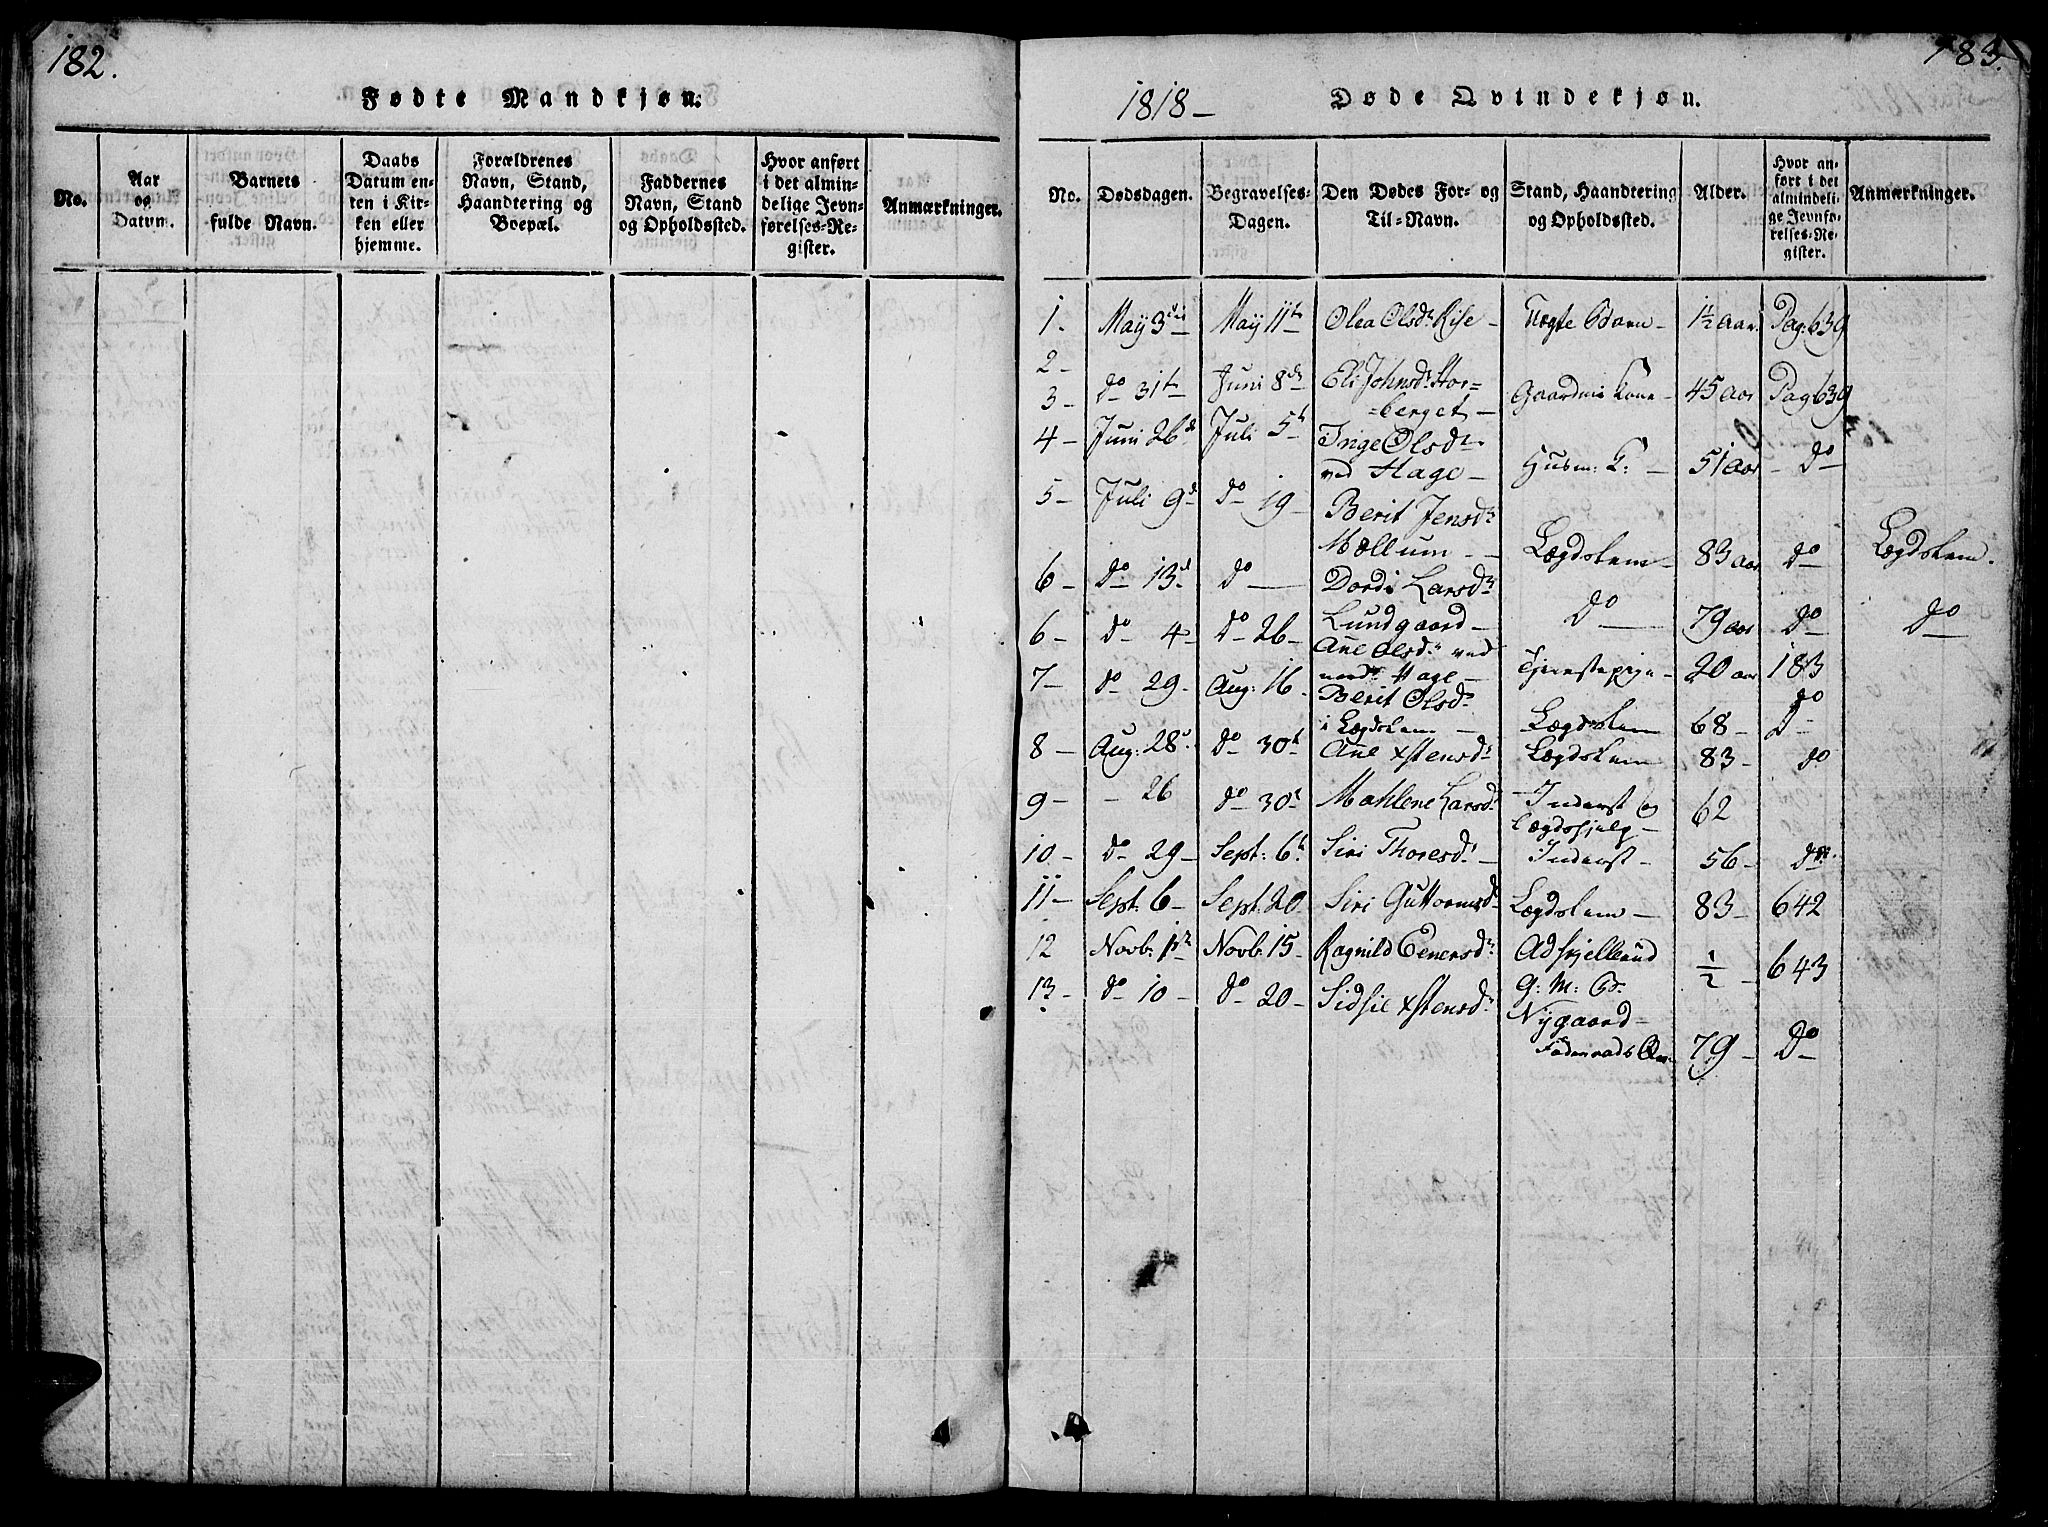 182.
Fødte Mandkjøn.
No.
Aar
og
Datum.
Barnets
fulde Navn.
Daabs
Datum en-
ten i Kir-
ken eller
hjemme.
Forældrenes
Navn, Stand,
Haandtering og
Boepæl.
Faddernes
Navn, Stand
og Opholdssted.
Hvor anført
i det almin-
delige Jevn-
førelses-Re-
gister.
Anmærkninger.
183.
1818-
Døde Qvindekjøn.
No.
Dødsdagen.
Begravelses-
Dagen.
Den Dødes For- og
Til-Navn.
Stand, Haandtering
og Opholdssted.
Alder.
Hvor an-
ført i det
almindeli-
ge Jevnfø-
relses-Re-
gister.
Anmærkninger.
1- May 3die May 11te Olea Olsdr Rise - Uægte Barn - 1½ aar Pag: 639
2-
3- do 31te Juni 8de Eli Johnsdr Stor=
=berget - Gaardms Kone - 45 aar Pag 639
4- Juni 26de Juli 5te Inge Olsdr
ved Hage - Husm: K: - 51 aar - do
5- Juli 9de do 19- Berit Jensdr
Mællum - Lægdslem - 83 aar do Lægdslem.
6- do 13de do Dordi Larsdr
Lundgaard - do 79 aar do do
6- do 4- do 26- Ane Olsdr ved
nedr Hage - Tjenestepige - 20 aar 183
7- do 29- Aug: 16- Berit Olsdr
i Lægdslem - Lægdslem 68- do
8- Aug: 28de do 30te Ane xstensdr Lægdslem 83- do
9- - 26 do 30te Mahlene Larsdr Inderst og
Lægdshjelp - 62
10- do 29- Sept: 6te Siri Thoresdr - Inderst - 56- do
11- Sept: 6- Sept: 20 Siri Guttormsdr Lægdslem - 83- 642
12 Novb: 1ste Novb: 15 Ragnild Eenersdr Adskjellerud
G: M: B. ½ - 643
13- do 10- do 20- Sidsie xstensdr Nygaard -
Føderaads 79- do